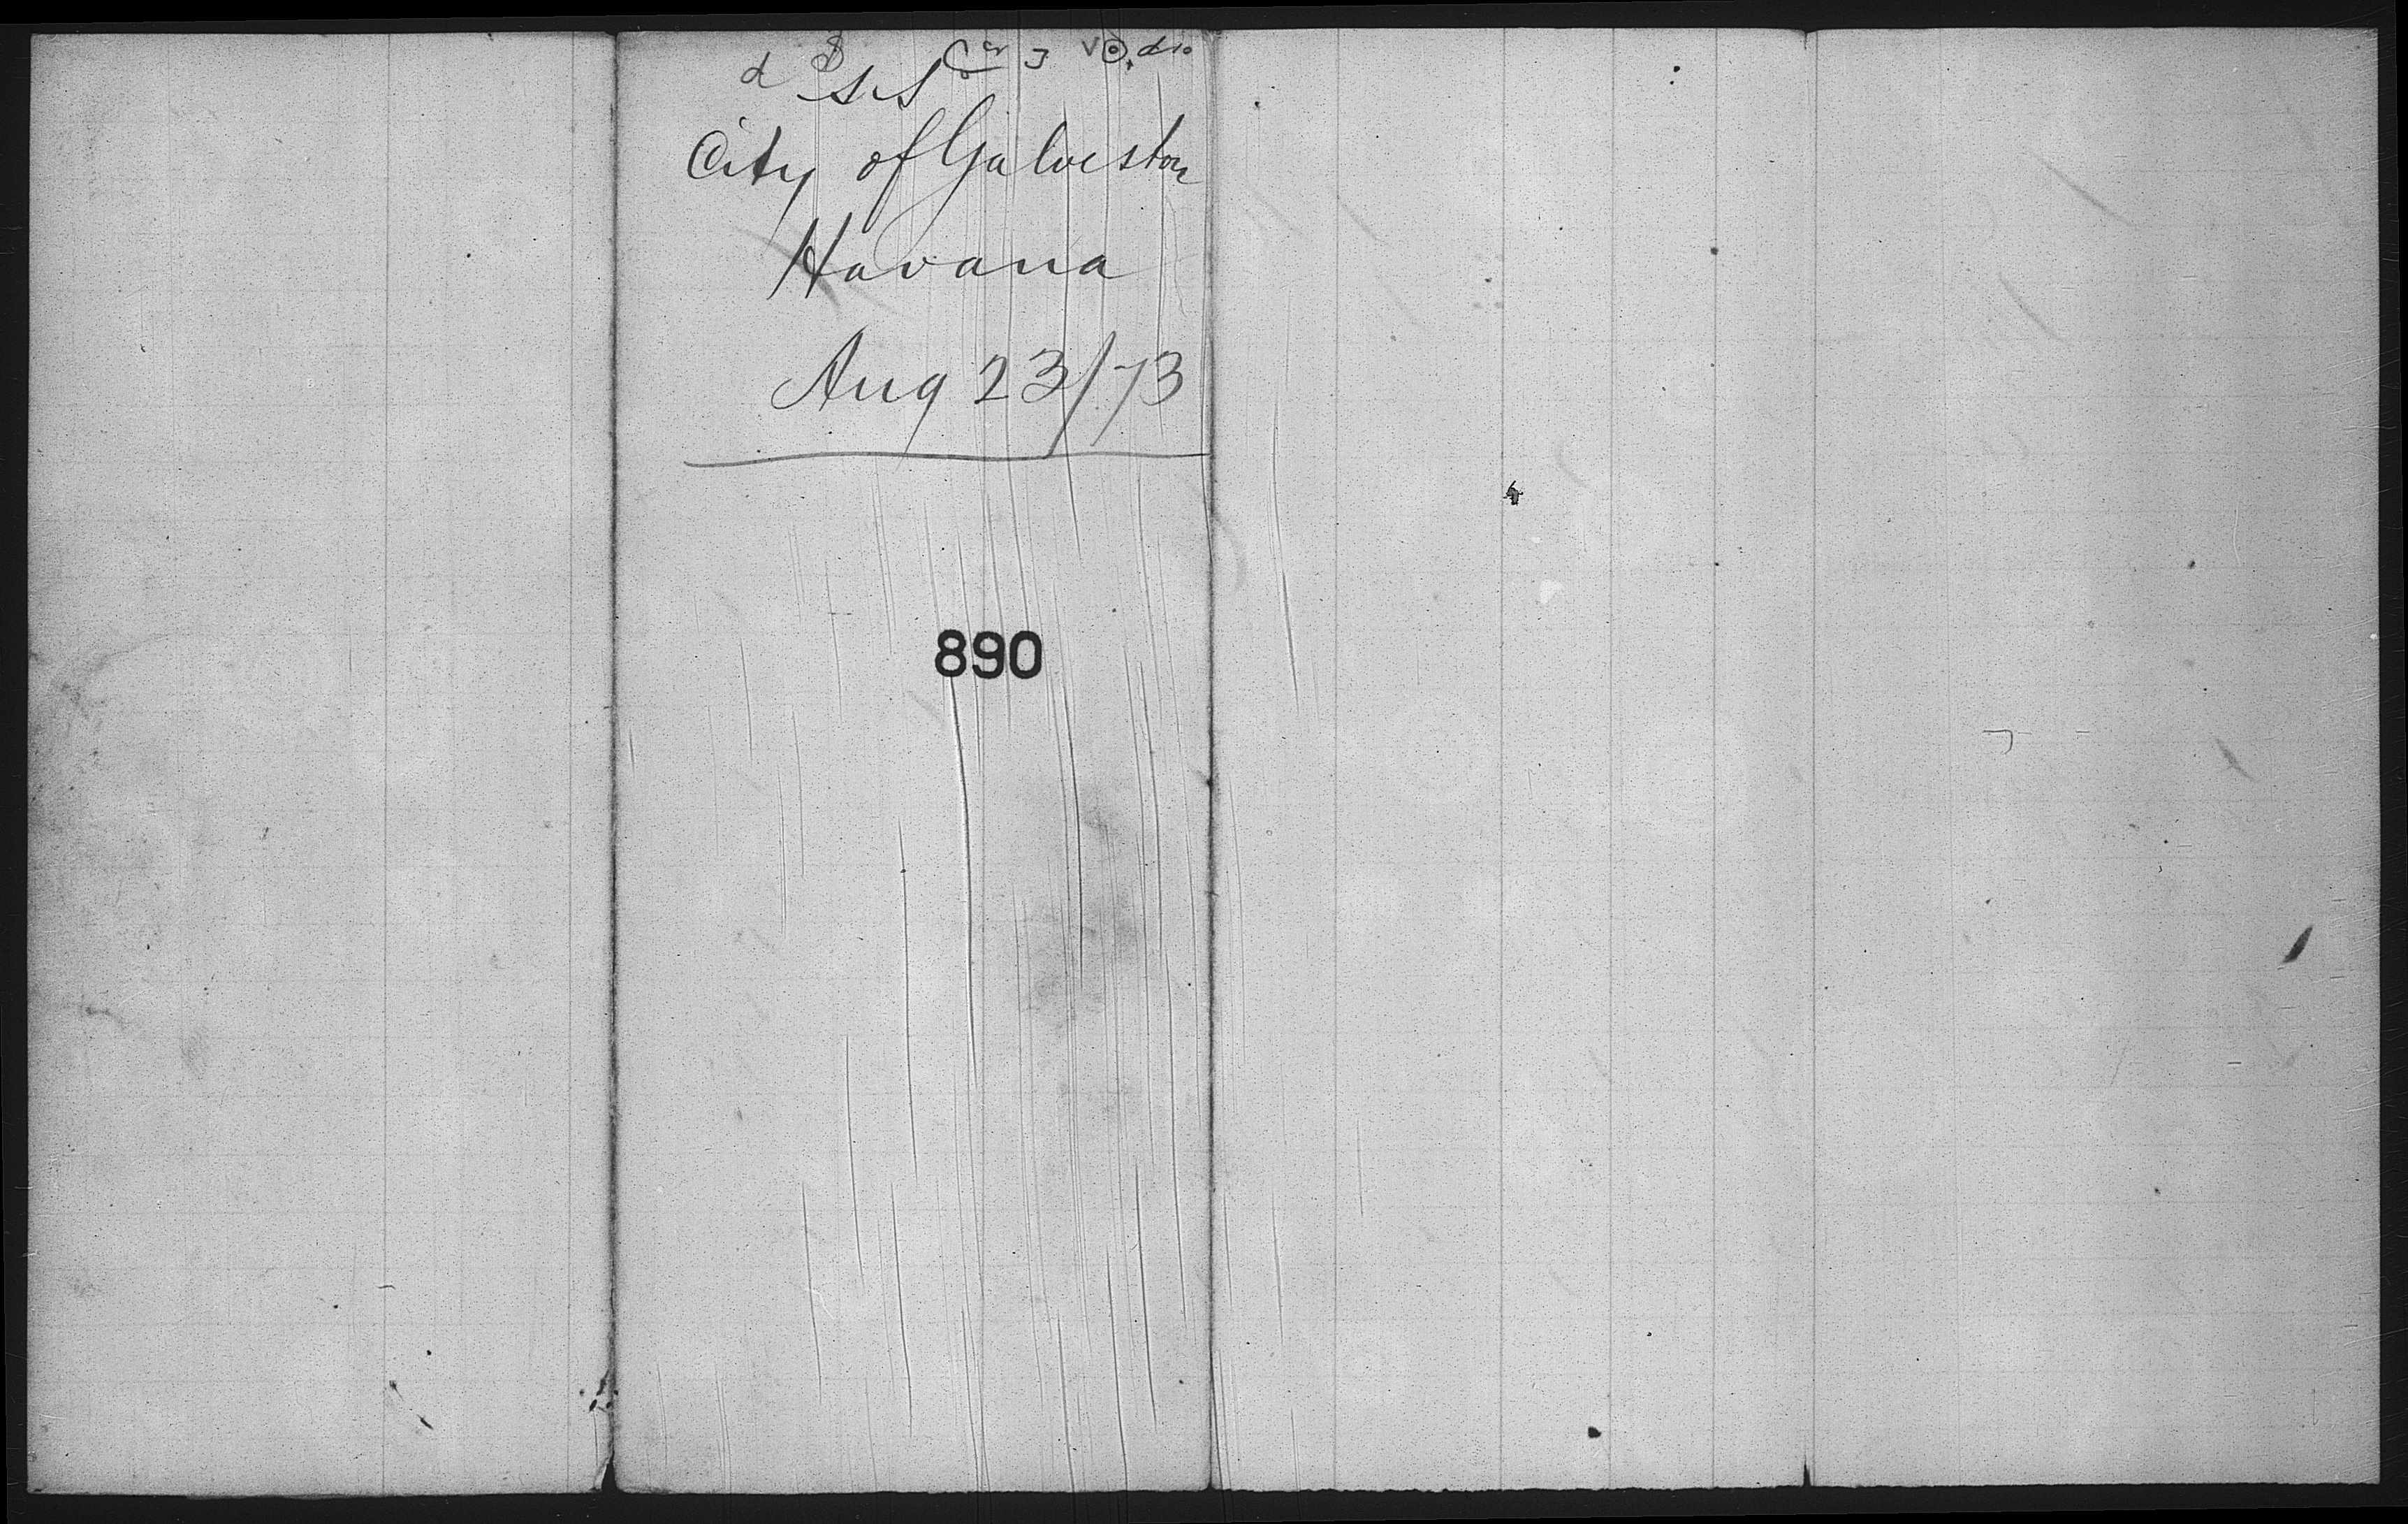 SS
City of Galveston
Havana
Aug 23/73
890